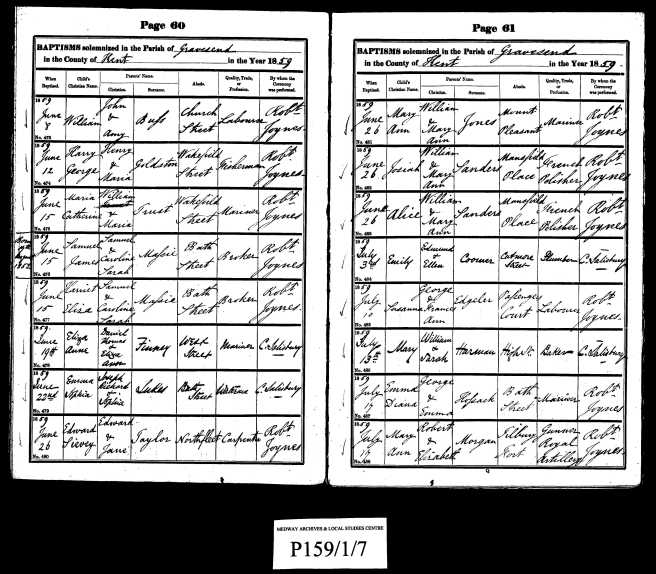 Page 60
BAPTISMS solemnized in the Parish of Gravesend
in the County of Kent in the Year 1859
When Baptized. Child's Christian Name. Parents' Name. Christian. Surname. Abode. Quality, Trade, or Profession. By whom the Ceremony was performed.
1859 June 8 William John & Amy Church Street Labourer Robt Joynes
No. 473
1859 June 12 Harry George Henry & Maria Goldston Wakefield Street Fisherman Robt Joynes
No. 474
1859 June 15 Maria Catherine William & Maria Trust Wakefield Street Mariner Robt Joynes
No. 475
Born 1852
1859 June 15 Samuel James Samuel & Caroline Sarah Massie Bath Street Broker Robt Joynes
No. 476
1859 June 15 Harriet Eliza Samuel & Caroline Sarah Massie Bath Street Broker Robt Joynes
No. 477
1859 June 19th Eliza Anne Daniel Thomas & Eliza Finney West Street Mariner C. Salisbury
No. 478
1859 June 22nd Emma Sophia Joseph Richard & Sophia Sukes Bath Street C. Salisbury
No. 479
1859 June 26 Edward Edward & Jane Taylor Northfleet Carpenter Robt Joynes
No. 480
Page 61
BAPTISMS solemnized in the Parish of Gravesend
in the County of Kent in the Year 1859.
When Baptized. Child's Christian Name. Parents' Name. Christian. Surname. Abode. Quality, Trade, or Profession. By whom the Ceremony was performed.
1859 June 26 Mary Ann William & Mary Ann Jones Mount Pleasant Mariner Robt Joynes
No. 481
1859 June 26 Josiah William & Mary Ann Sanders Mansfield Place French Polisher Robt Joynes
No. 482
1859 June 26 Alice William & Mary Ann Sanders Mansfield Place French Polisher Robt Joynes
No. 483
1859 July 3rd Emily Edmund & Ellen Coomer Street Plumber C. Salisbury
No. 484
1859 July 10 Susanna George & Frances Ann Edgeler Passenger Court Labourer Robt Joynes.
No. 485
1859 July 13th Mary William & Sarah Harman High St. Baker C. Salisbury
No. 486
1859 July 17 Emma Diana George & Emma Bath Street Mariner Robt Joynes
No. 487
1859 July 17 Mary Ann Robert & Elizabeth Morgan Tilbury Fort Gunner Royal Artillery Robt Joynes
No. 488
MEDWAY ARCHIVES & LOCAL STUDIES CENTRE
P159/1/7